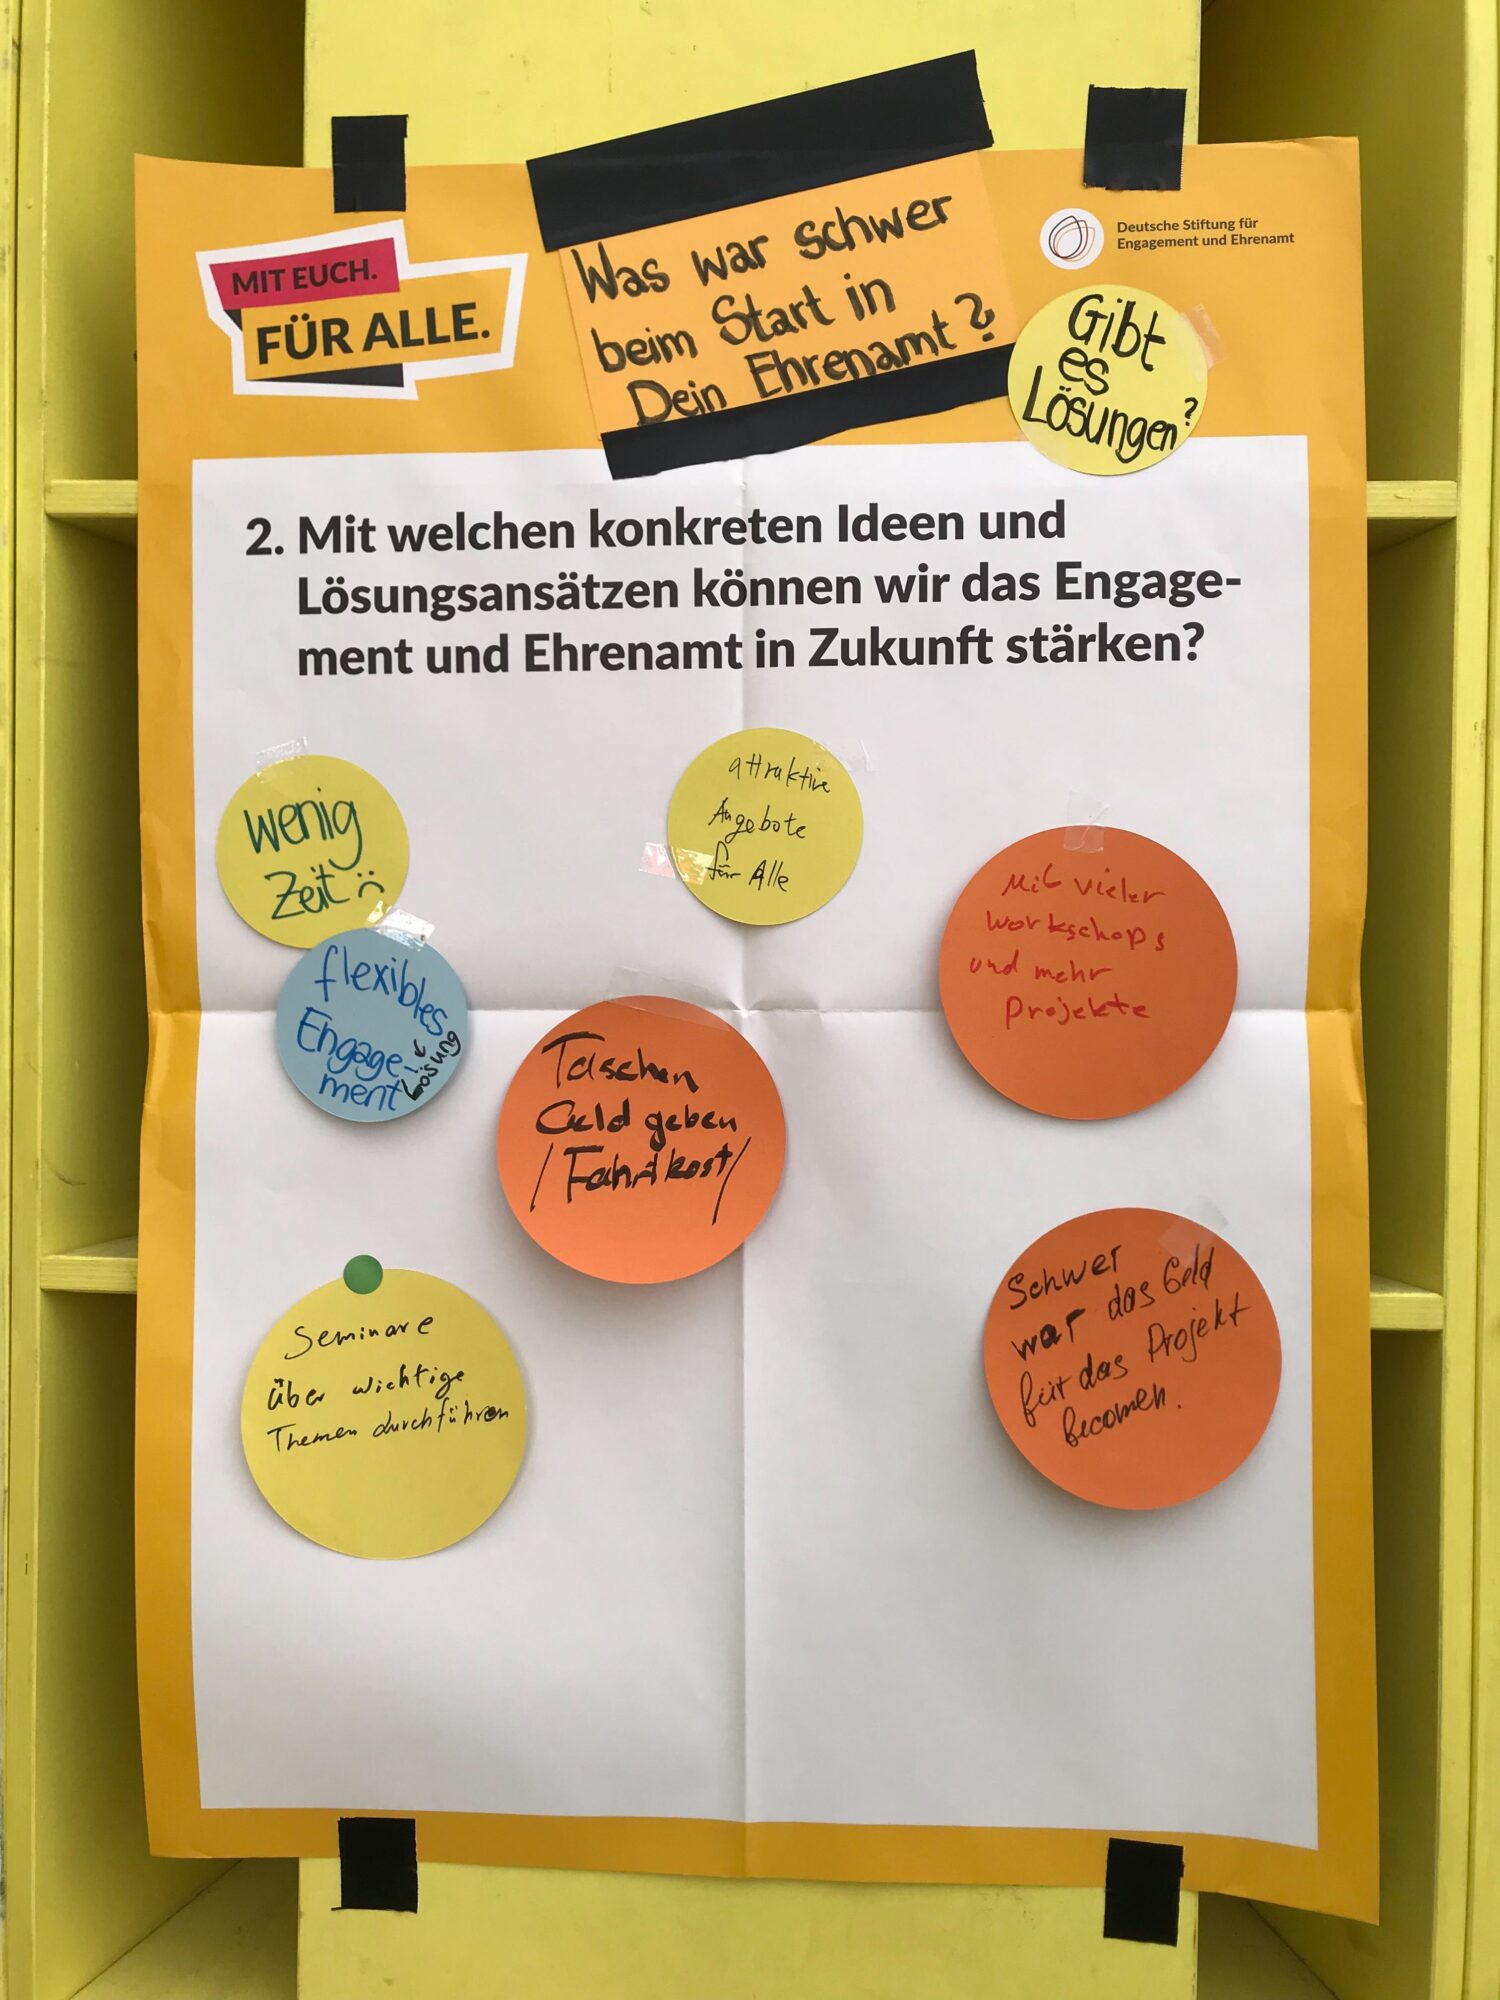 MIT EUCH.
FÜR ALLE.
Was war schwer
beim Start in
Dein Ehrenamt?
Deutsche Stiftung für
Engagement und Ehrenamt
Gibt
es
Lösungen?
2. Mit welchen konkreten Ideen und
Lösungsansätzen können wir das Engage-
ment und Ehrenamt in Zukunft stärken?
wenig
Zeit :(
flexibles
Engage-
ment
← Lösung
attraktive
Angebote
für Alle
Mit vieler
workschops
und mehr
Projekte
Taschen
Geld geben
/Fahrtkost/
Seminare
über wichtige
Themen durchführen
Schwer
war das Geld
für das Projekt
becomen.